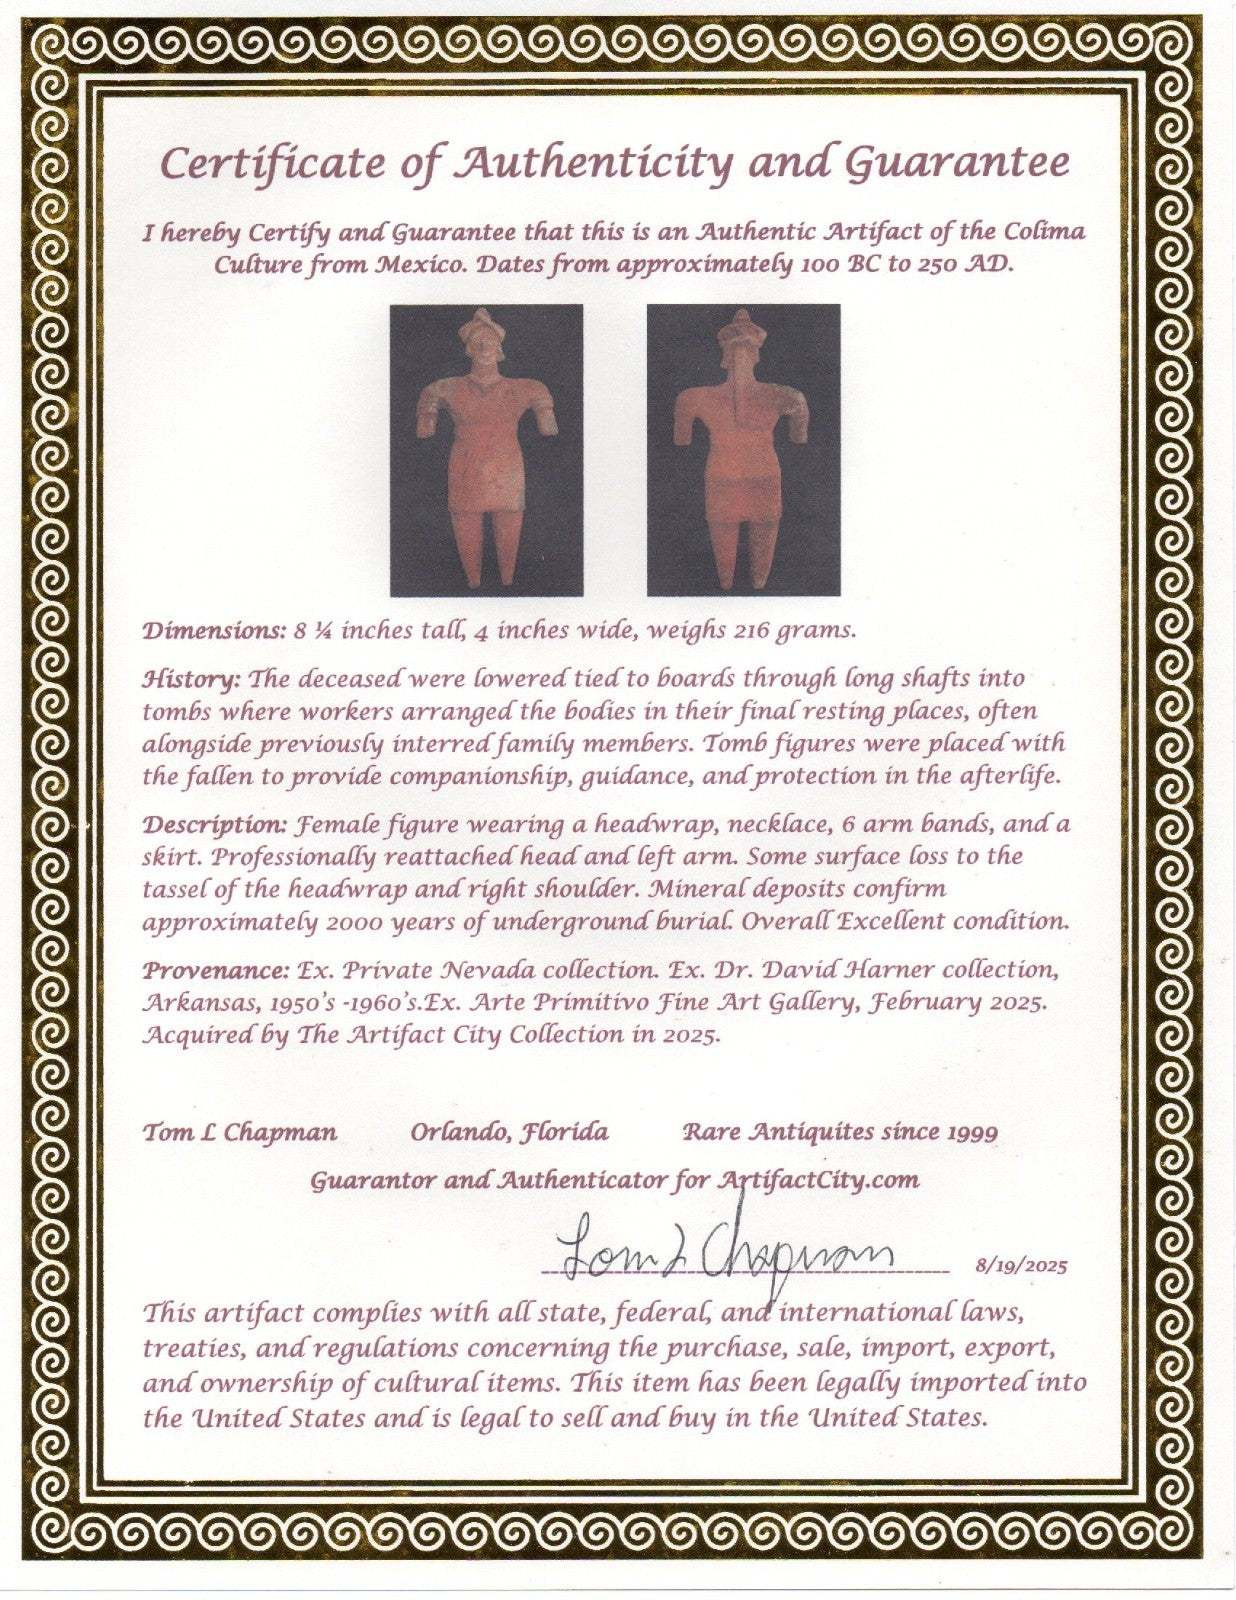 Certificate of Authenticity and Guarantee
I hereby Certify and Guarantee that this is an Authentic Artifact of the Colima
Culture from Mexico. Dates from approximately 100 BC to 250 AD.
Dimensions: 8 ¼ inches tall, 4 inches wide, weighs 216 grams.
History: The deceased were lowered tied to boards through long shafts into
tombs where workers arranged the bodies in their final resting places, often
alongside previously interred family members. Tomb figures were placed with
the fallen to provide companionship, guidance, and protection in the afterlife.
Description: Female figure wearing a headwrap, necklace, 6 arm bands, and a
skirt. Professionally reattached head and left arm. Some surface loss to the
tassel of the headwrap and right shoulder. Mineral deposits confirm
approximately 2000 years of underground burial. Overall Excellent condition.
Provenance: Ex. Private Nevada collection. Ex. Dr. David Harner collection,
Arkansas, 1950's -1960's.Ex. Arte Primitivo Fine Art Gallery, February 2025.
Acquired by The Artifact City Collection in 2025.
Tom L Chapman Orlando, Florida Rare Antiquites since 1999
Guarantor and Authenticator for ArtifactCity.com
Tom L Chapman 8/19/2025
This artifact complies with all state, federal, and international laws,
treaties, and regulations concerning the purchase, sale, import, export,
and ownership of cultural items. This item has been legally imported into
the United States and is legal to sell and buy in the United States.